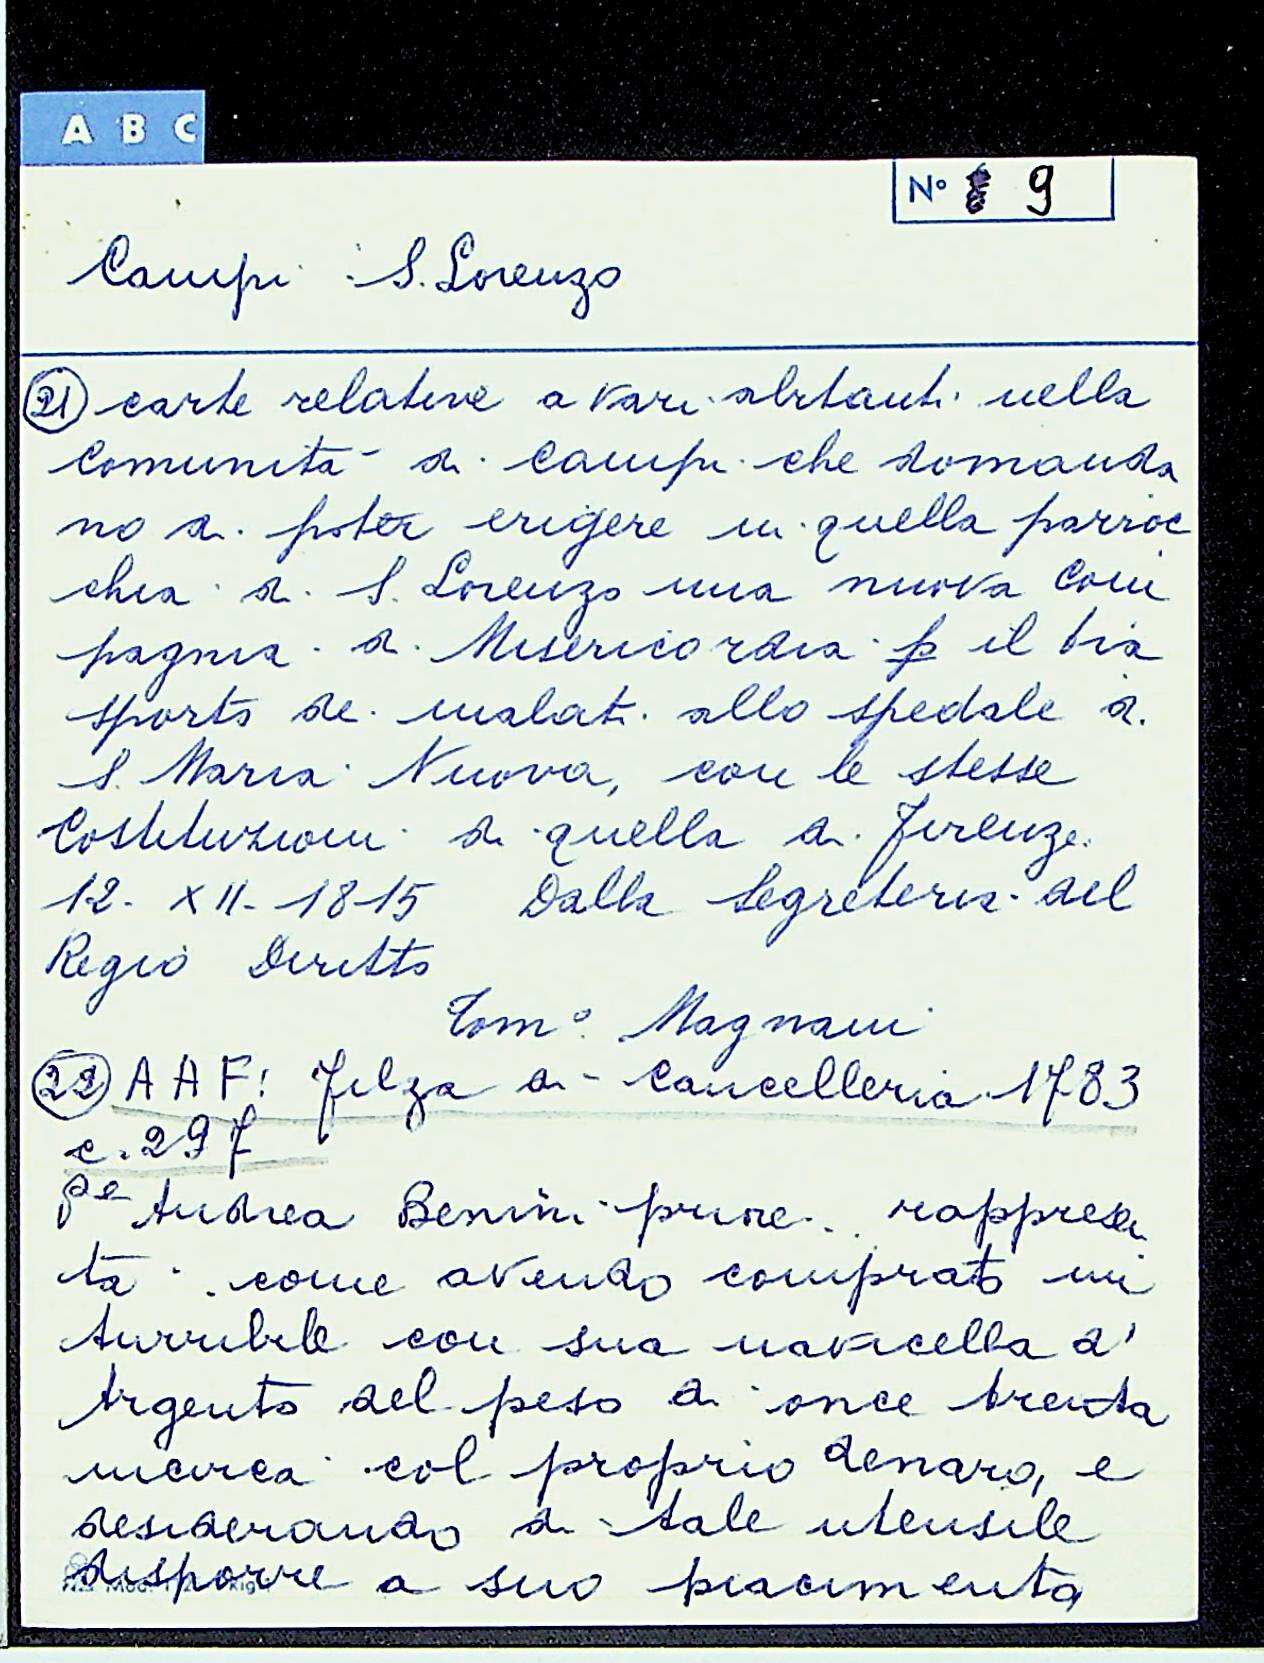 A B C
N° 9
Campi S. Lorenzo
21 carte relative a vari abitanti nella
Comunità di Campi che domanda
no di poter erigere in quella parroc
chia di S. Lorenzo una nuova Com
pagnia di Misericordia p il tra
sporto de malati allo spedale di
S. Maria Nuova, con le stesse
Costituzioni di quella di Firenze.
12. XII. 1815 Dalla Segreteria del
Regio Diritto
Tom° Magnani
22 AAF: Filza di Cancelleria 1783
c. 297
Pe Andrea Benini priore rappresen
ta come avendo comprato un
turribile con sua navicella d'
Argento del peso di once trenta
incirca col proprio denaro, e
desiderando di tale utensile
disporre a suo piacimento